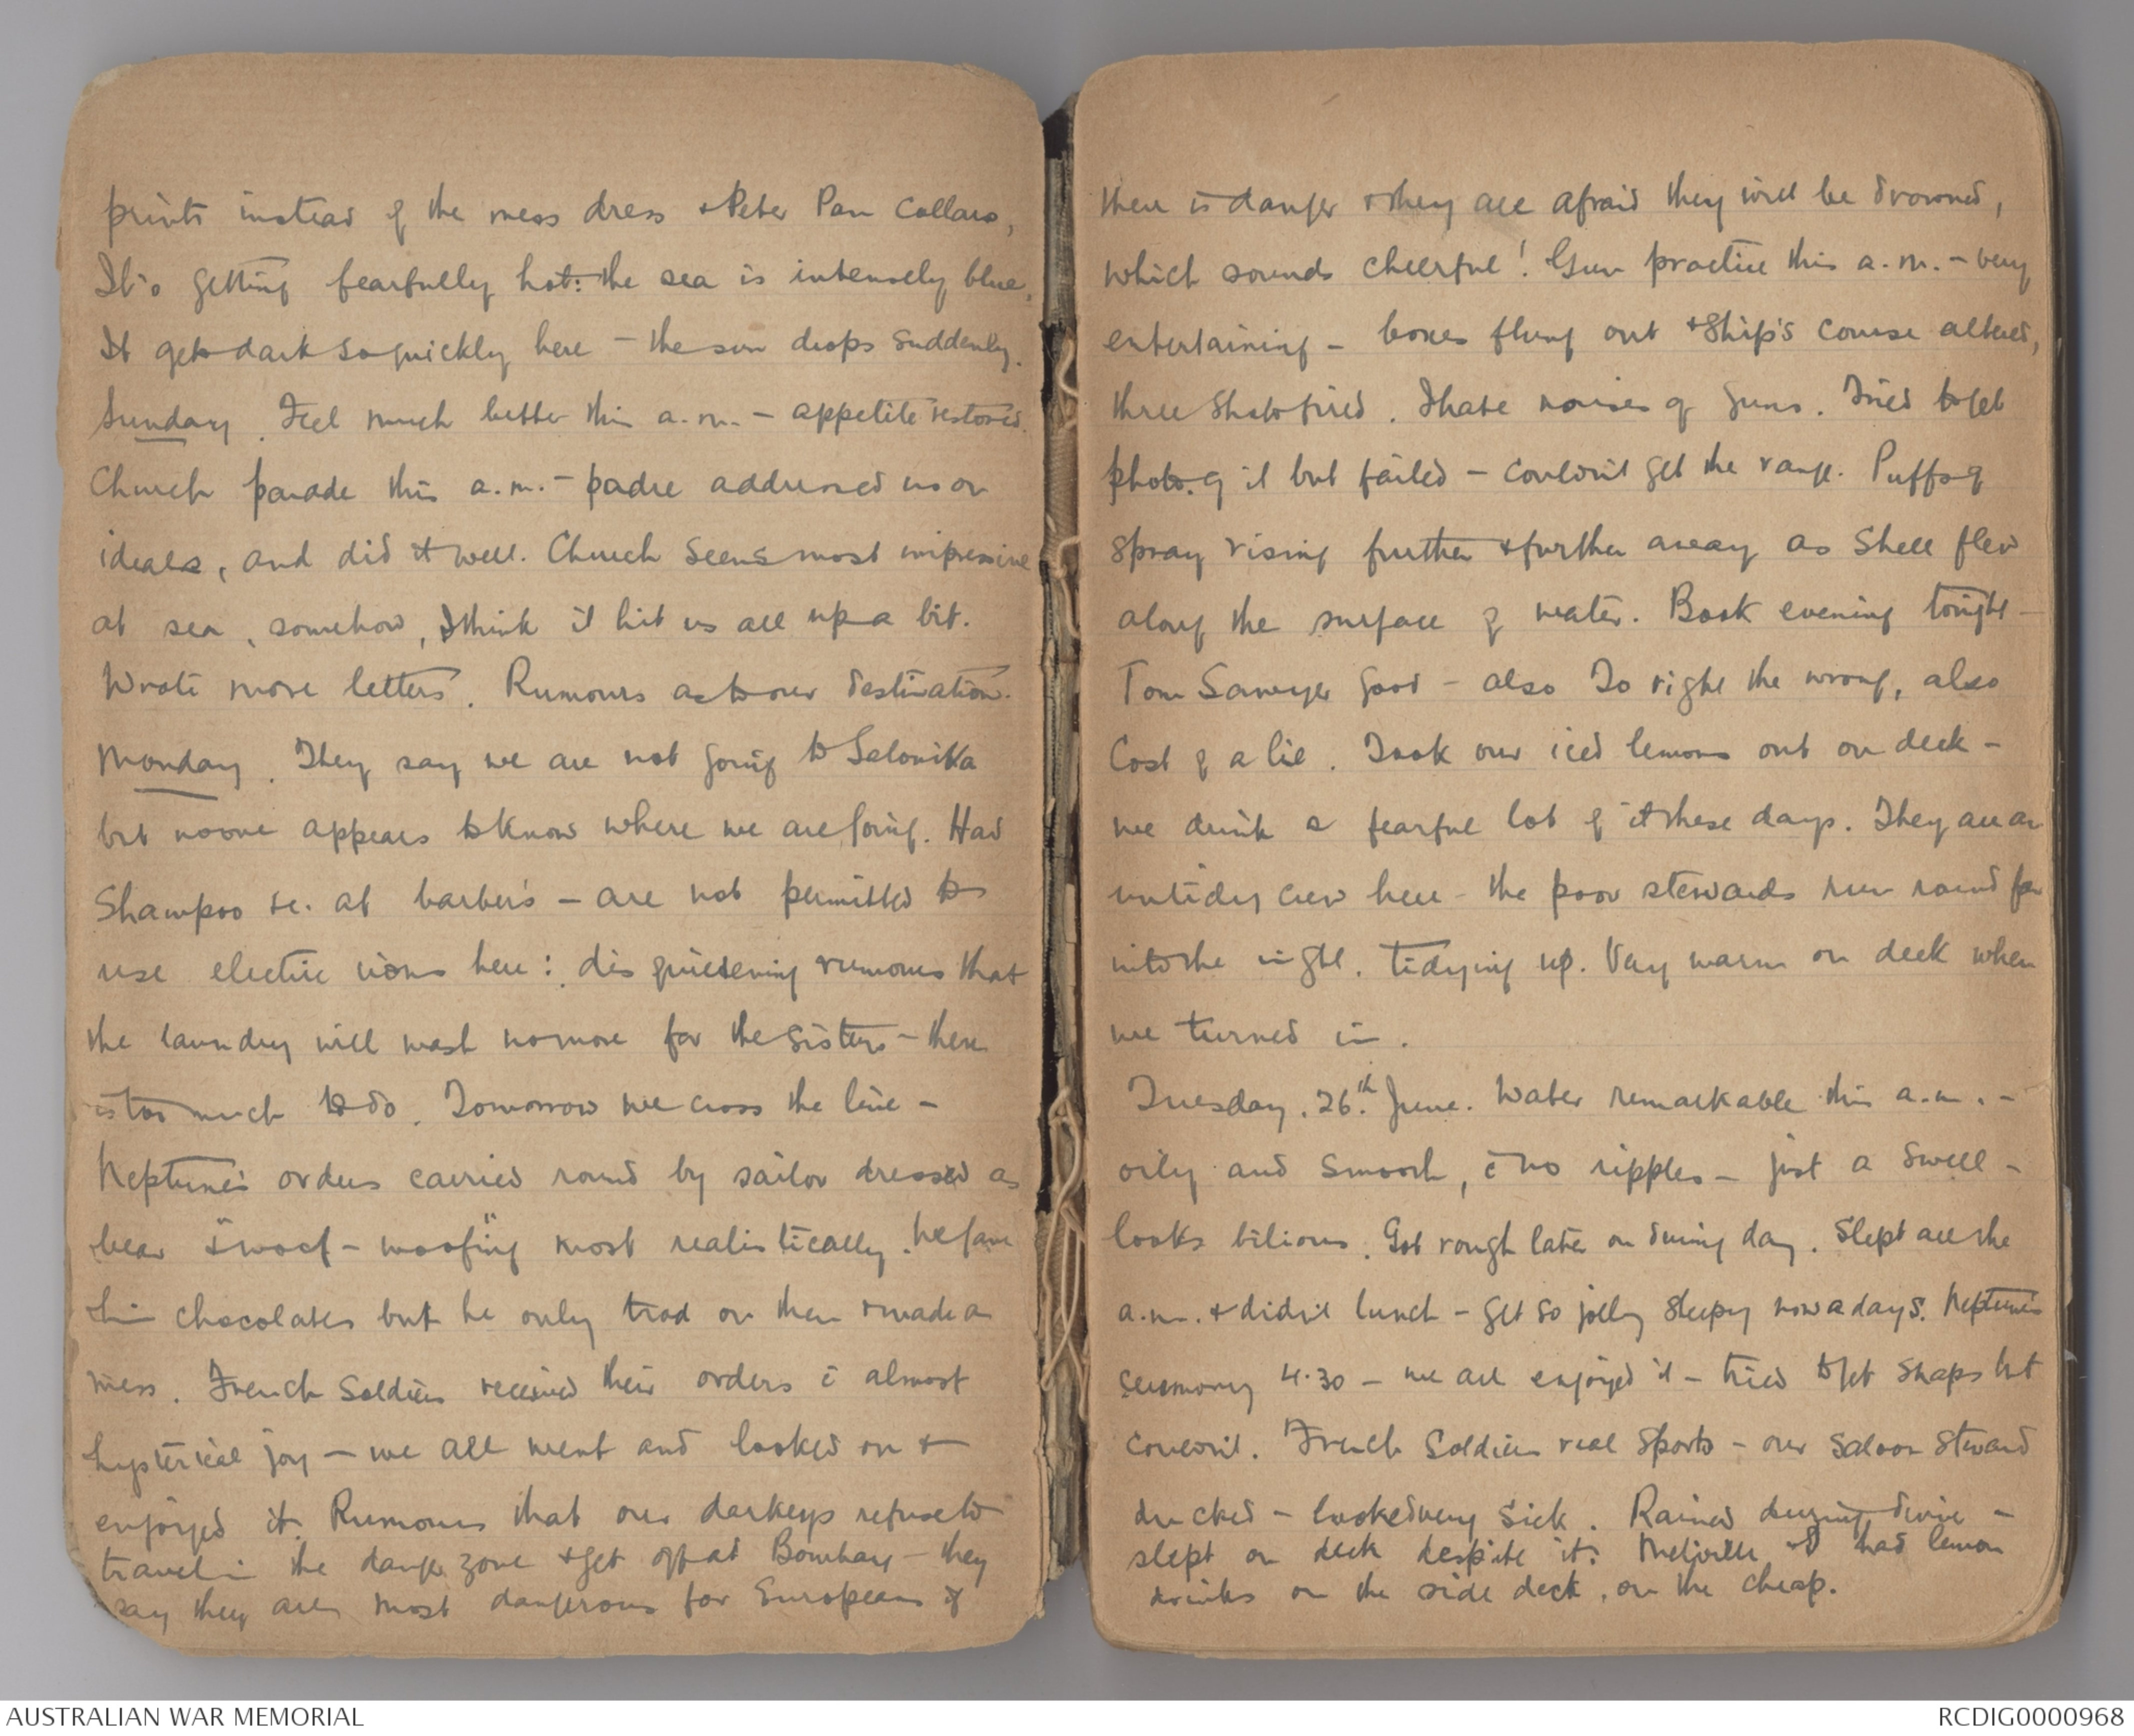 prints instead of the mess dress & Peter Pan Collars,
It's getting fearfully hot: the sea is intensely blue,
It gets dark so quickly here - the sun drops suddenly.
Sunday. Feel much better this a.m. - appetite restored.
Church parade this a.m. - padre addressed us on
ideals, and did it well. Church seems most impressive
at sea, somehow, I think it hit us all up a bit.
Wrote more letters. Rumours as to our destination.
Monday. They say we are not going to Salonika
but noone appears to know where we are going. Had
Shampoo etc. at barber's - are not permitted to
use electric irons here: disquietening rumours that
the laundry will wash no more for the Sisters - there
is too much to do. Tomorrow we cross the line -
Neptune's orders carried round by sailor dressed as
bear "woof-woofing" most realistically. We gave
him chocolates but he only trod on them & made a
mess. French Soldiers received their orders c̄ almost
hysterical joy - we all went and looked on &
enjoyed it. Rumours that our darkeys refuse to
travel in the danger zone & get off at Bombay - they
say they are most dangerous for Europeans if
there is danger & they are afraid they will be drowned,
which sounds cheerful! Gun practice this a.m. - very
entertaining - boxes flung out & Ship's course altered,
three shots fired. I hate noises of guns. Tried to get
photo. of it but failed - couldn't get the range. Puffs of
spray rising further & further away as Shell flew
along the surface of water. Book evening tonight -
Tom Sawyer good - also To right the wrong, also
Cost of a lie. Took our iced lemons out on deck -
we drink a fearful lot of it these days. They are an
untidy crew here - the poor stewards run round far
into the night. tidying up. Very warm on deck when
we turned in.
Tuesday, 26th June. Water remarkable this a.m. -
oily and smooth, c̄ no ripples - just a swell -
looks bilious. Got rough later on during day. Slept all the
a.m. & didn't lunch - get so jolly sleepy nowadays. Neptune's
ceremony 4.30 - we all enjoyed it - tried to get snaps but
couldn't. French Soldiers real sports - our saloon steward
ducked - looked very sick. Rained during dinner -
slept on deck despite it: & I had lemon
drinks on the side deck, on the cheap.
AUSTRALIAN WAR MEMORIAL
RCDIG0000968